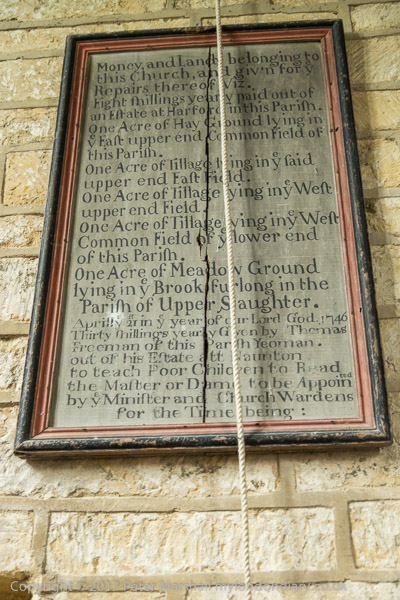 Money, and Lands belonging to
this Church, and giv'n for yͤ
Repairs thereof Viz.
Eight ſhillings yearly paid out of
an Eſtate at Harford in this Pariſh.
One Acre of Hay Ground lying in
yͤ East upper end Common Field of
this Pariſh.
One Acre of Tillage lying in yͤ ſaid
upper end East Field.
One Acre of Tillage lying in yͤ Weſt
upper end Field.
One Acre of Tillage lying in yͤ Weſt
Common Field of yͤ lower end
of this Pariſh.
One Acre of Meadow Ground
lying in yͤ Brook furlong in the
Pariſh of Upper Slaughter.
April yͤ 21 in yͤ year of our Lord God, 1746
Thirty ſhillings yearly Given by Thomas
Freeman of this Pariſh Yeoman.
out of his Eſtate att Naunton
to teach Poor Children to Read
the Maſter or Dame to be Appoin ted
by yͤ Miniſter and Church Wardens
for the Time being :
Copyright Peter Marshall mylondondiary.co.uk